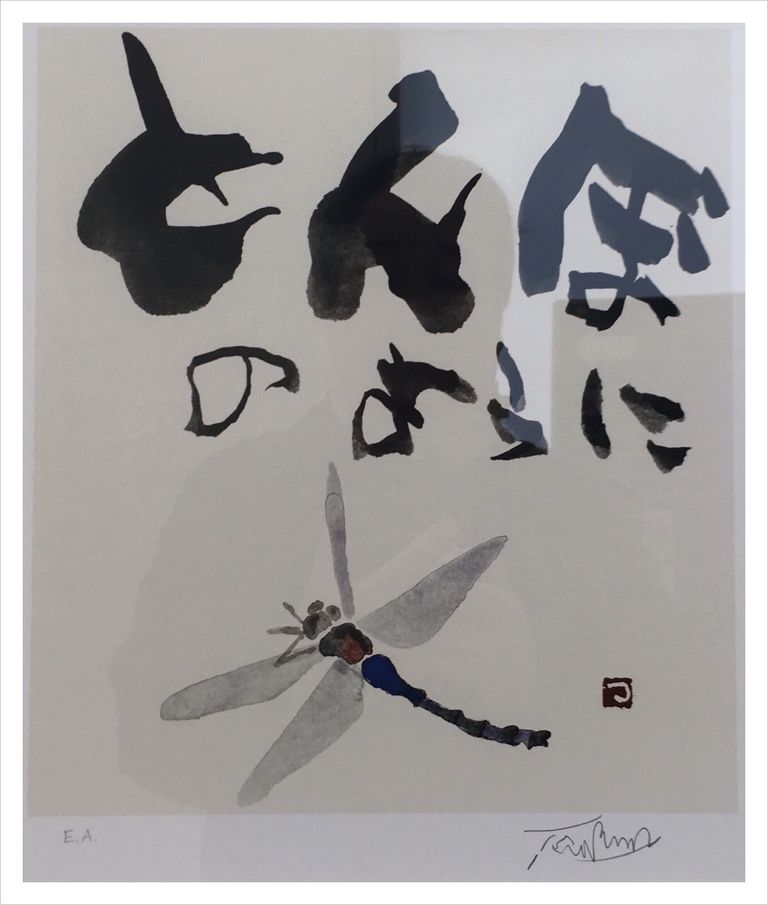 とんぼ
のように
E.A.